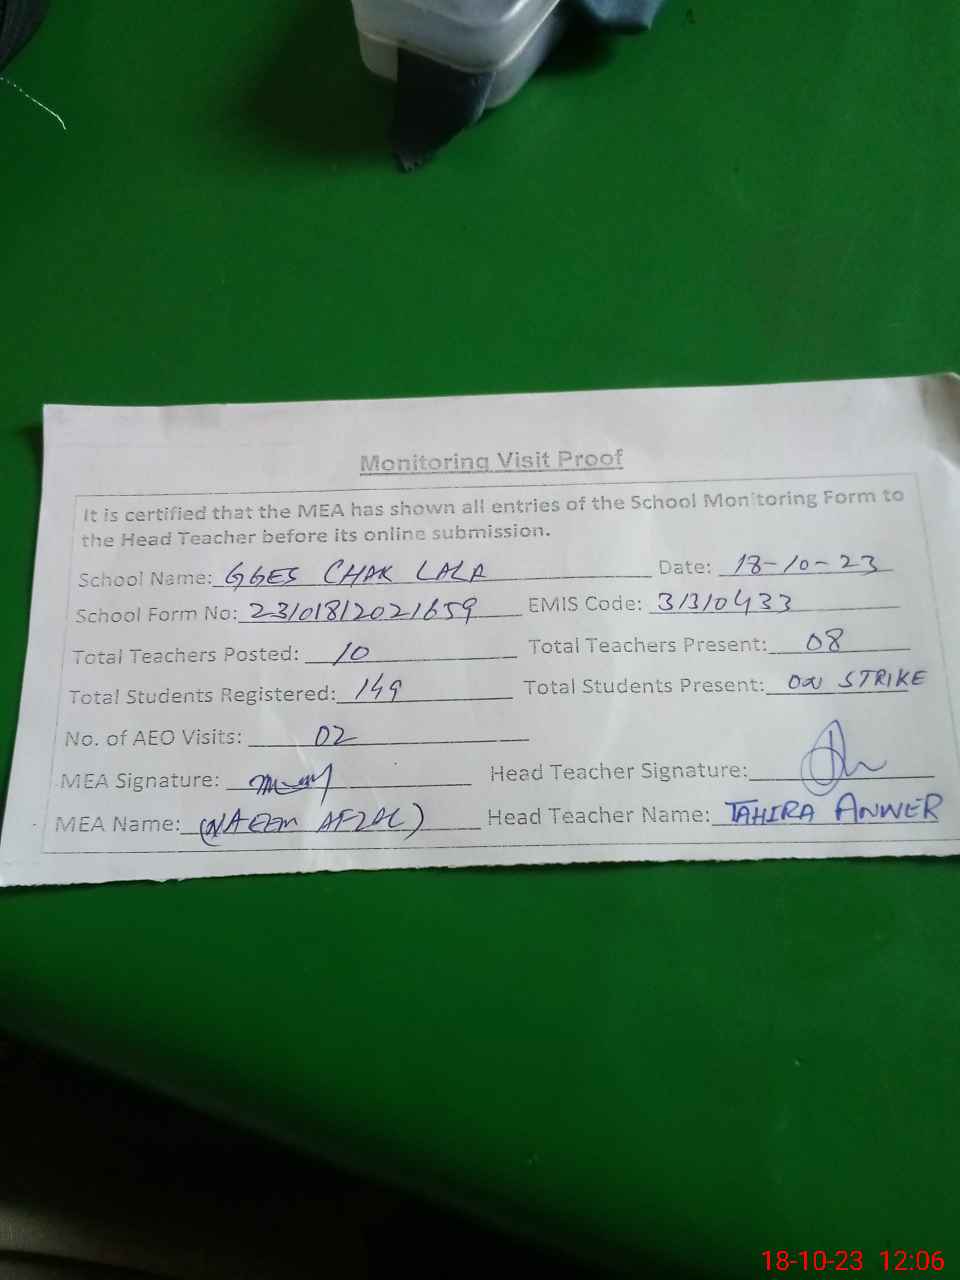 Monitoring Visit Proof
It is certified that the MEA has shown all entries of the School Monitoring Form to
the Head Teacher before its online submission.
School Name: GGES CHAK LALA Date: 18-10-23
School Form No: 23101812021659 EMIS Code: 31310433
Total Teachers Posted: 10 Total Teachers Present: 08
Total Students Registered: 149 Total Students Present: ON STRIKE
No. of AEO Visits: 02
MEA Signature: Head Teacher Signature:
MEA Name: (NAEEM AFZAL) Head Teacher Name: TAHIRA ANWER
18-10-23 12:06